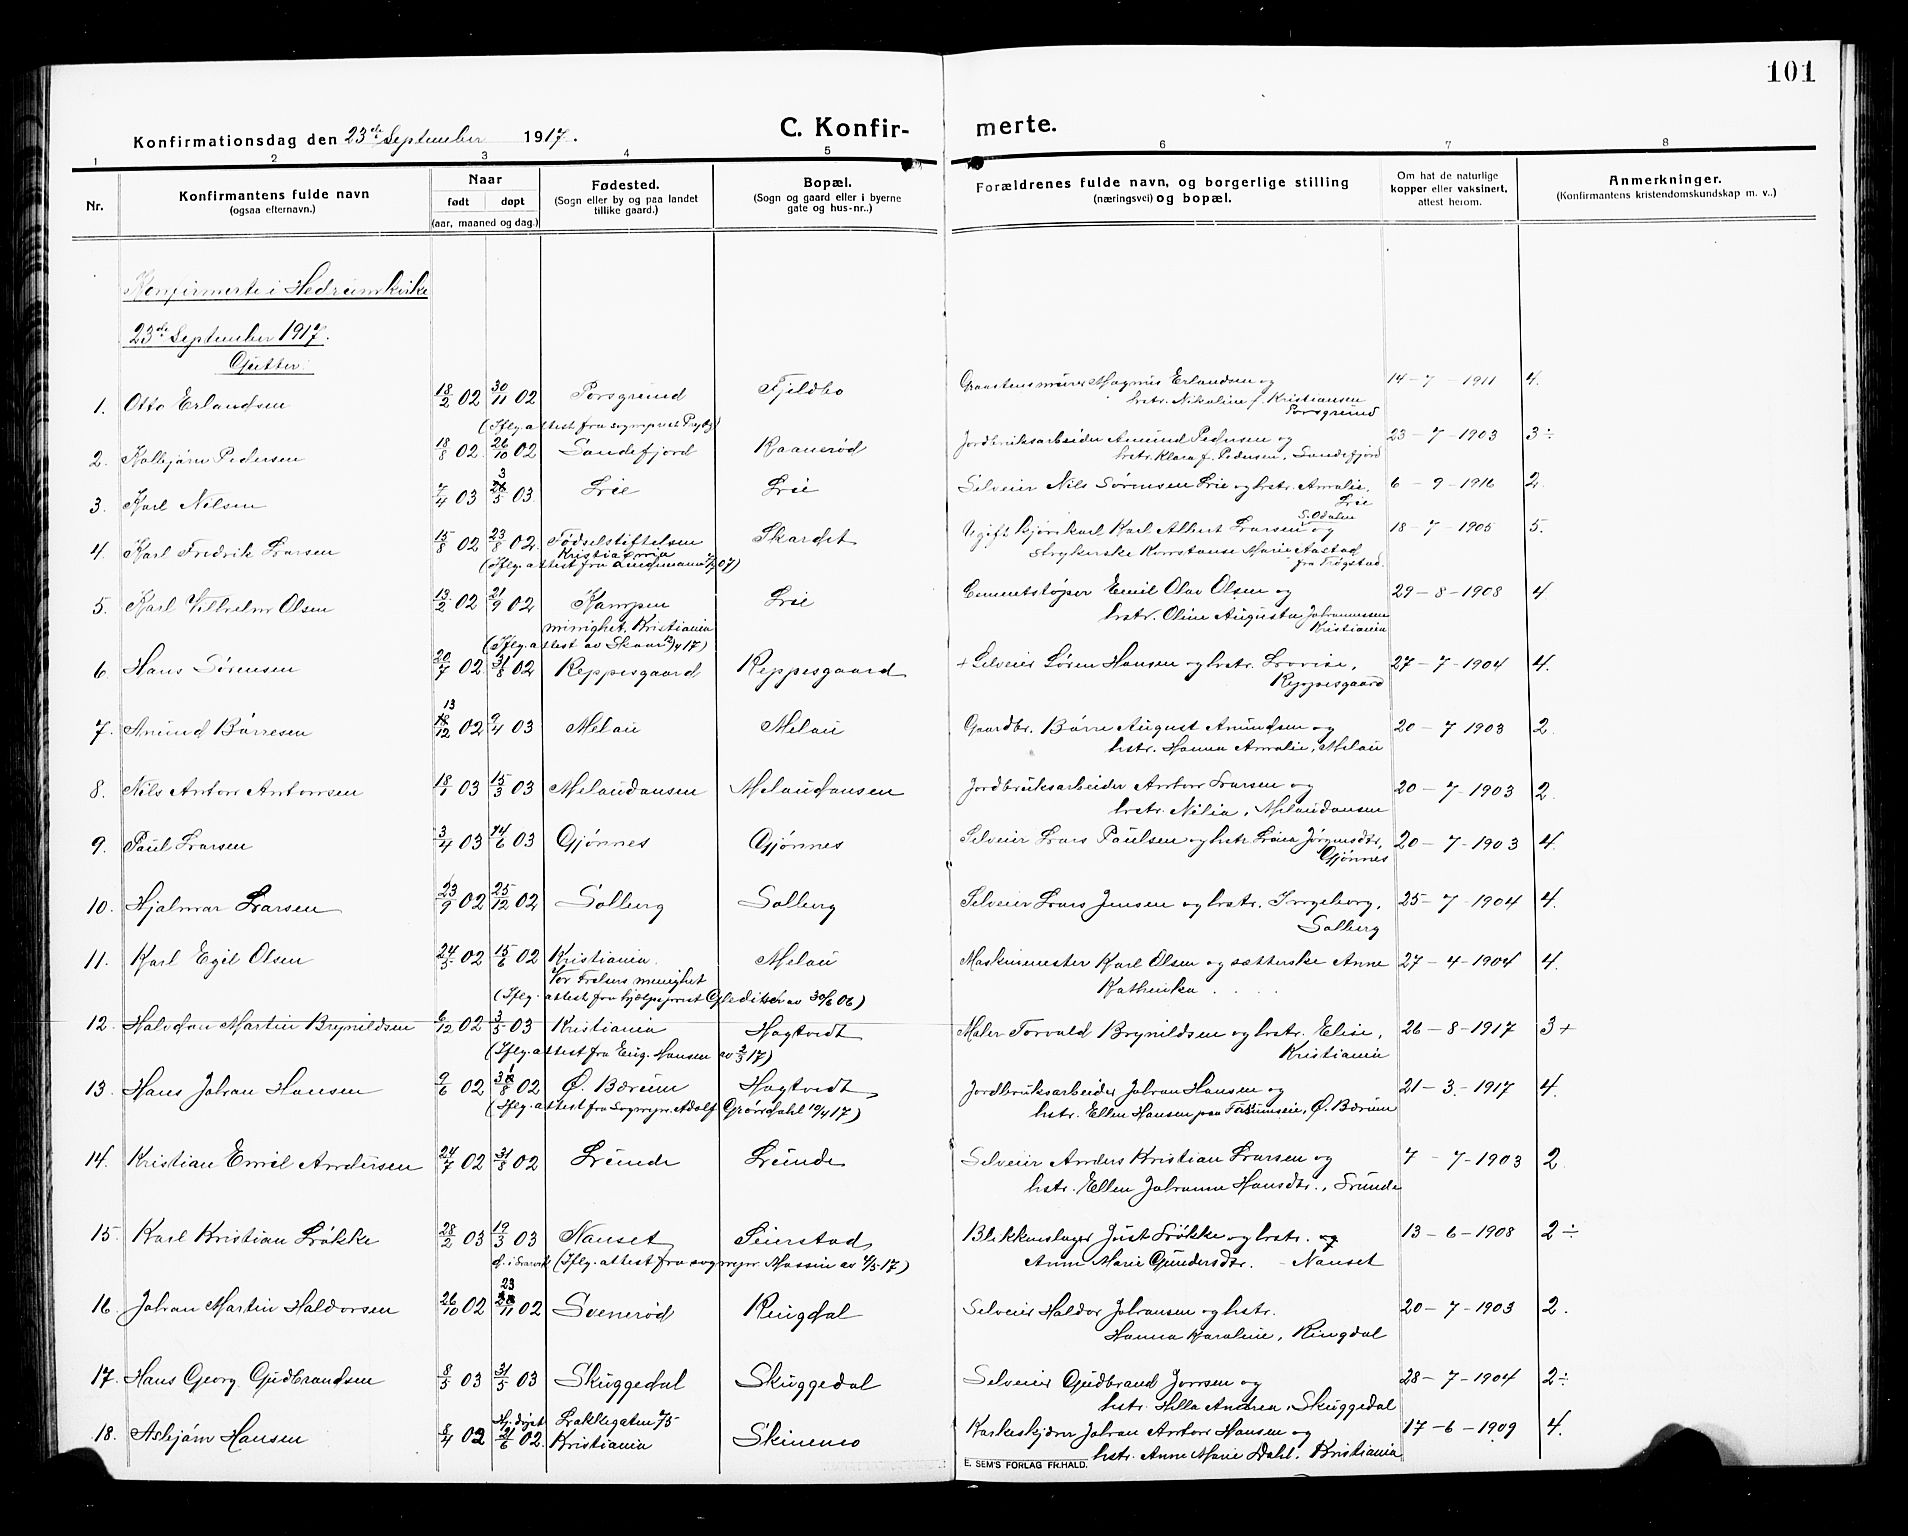 101
Konfirmationsdag den 23de September 1917.
C. Konfirmerte.
1 2 3 4 5 6 7 8
Nr. Konfirmantens fulde navn (ogsaa efternavn.) Naar født døpt (aar, maaned og dag.) Fødested. (Sogn eller by og paa landet tillike gaard.) Bopæl. (Sogn og gaard eller i byerne gate og hus-nr..) Forældrenes fulde navn, og borgerlige stilling (næringsvei) og bopæl. Om hat de naturlige kopper eller vaksinert, attest herom. Anmerkninger. (Konfirmantens kristendomskundskap m. v..)
Konfirmerte i Hedrum kirke
23de September 1917.
Gutter.
1. Otto Erlandsen 18/2 02 30/11 02 Porsgrund Fjeldbo Graastensmurer Magnus Erlandsen og 14-7-1911 4.
hstr. Nikoline f. Kristiansen
Porsgrund
(Iflg. attest fra sogneprest
2. Kolbjørn Pedersen 18/8 02 26/10 02 Sandefjord Raanerød Jordbruksarbeider Amund Pedersen og 23-7-1903 3÷
hstr. Klara f. Pedersen, Sandefjord
3. Karl Nilsen 7/4 03 3/5 03 Lie Lie Selveier Nils Sørensen Lie og hstr. Amalie, 6-9-1916 2.
Lie
4. Karl Fredrik Larsen 15/8 02 23/8 02. Fødselstiftelsen Skardet Ugift bjørkarl Karl Albert Larsen S. Odalen og 18-7-1905 5.
Kristiania strykerske Konstanse Marie Aastad
(Iflg. attest fra Lindemann 07) fra Trøgstad.
5. Karl Vilhelm Olsen 13/2 02 21/9 02 Kampen Lie Cementstøper Emil Olav Olsen og 29-8-1908 4
menighet, Kristiania hstr. Oline Augusta Johannessen
(Iflg. attest av Skaar 17) Kristiania
6. Hans Sørensen 20/7 02 31/8 02 Reppesgaard Reppesgaard + Selveier Søren Hansen og hstr. Lovise, 27-7-1904 4.
Reppesgaard
7. Amund Børresen 13/12 02 9/4 03 Melau Melau Gaardbr. Børre August Amundsen og 20-7-1903 2.
hstr. Hanna Amalie, Melau
8. Nils Anton Antonsen 18/1 03 15/3 03 Melaudansen Melaudansen Jordbruksarbeider Anton Larsen og 20-7-1903 2.
hstr. Nilia, Melaudansen
9. Paul Larsen 3/4 03 14/6 03 Gjønnes Gjønnes Selveier Lars Paulsen og hstr. Lovisa Jørgensdtr, 20-7-1903 4.
Gjønnes
10. Hjalmar Larsen 23/9 02 25/12 02 Solberg Solberg Selveier Lars Jensen og hstr. Ingeborg, 25-7-1904 4.
Solberg
11. Karl Egil Olsen 24/5 02 15/6 02 Kristiania. Melau Maskinmester Karl Olsen og sætterske Anne 27-4-1904 4.
Vor Frelsers menighet Kathinka . . . .
(Iflg. attest fra hjælpeprest Gleditsch av 30/6 06)
12. Halvdan Martin Brynildsen 6/12 02 3/5 03 Kristiania Hagtvedt Maler Torvald Brynildsen og hstr. Elise, 26-8-1917 3+
(Iflg. attest fra Eug. Hansen av 2/3 17) Kristiania
13. Hans Johan Hansen 9/6 02 31/8 02 Ø. Bærum Hagtvedt Jordbruksarbeider Johan Hansen og 21-3-1917 4.
(Iflg. attest fra Sognepr. Adolf Grøndahl 10/4 17) hstr. Ellen Hansen paa Fossumseie, Ø. Bærum
14. Kristian Emil Andersen 24/7 02 31/8 02 Lunde Lunde Selveier Anders Kristian Larsen og 7-7-1903 2.
hstr. Ellen Johanne Hansdtr., Lunde
15. Karl Kristian Løkke 28/2 03 19/3 03 Nanset Seierstad Blikkenslager Just Løkke og hstr. 13-6-1908 2÷
d. i Larvik (Iflg. attest fra sognepr. Massin av 4/5-17) Anne Marie Gundersdtr. - Nanset
16. Johan Martin Haldorsen 26/10 02 23/11 02 Svenerød Ringdal Selveier Haldor Johansen og hstr. 20-7-1903 2.
Hanna Karoline, Ringdal
17. Hans Georg Gudbrandsen 8/5 03 31/5 03 Skuggedal Skuggedal Selveier Gudbrand Jonsen og 28-7-1904 2÷
hstr. Hilla Andrea, Skuggedal
18. Asbjørn Hansen 8/4 02 Hj. døpt 21/6 02. Lakkegaten 75 Kristiania Skinmo Karkeskjærer Johan Anton Hansen og 17-6-1909 4.
hstr. Anne Marie Dahl, Kristiania
E. SEM'S FORLAG FR.HALD.